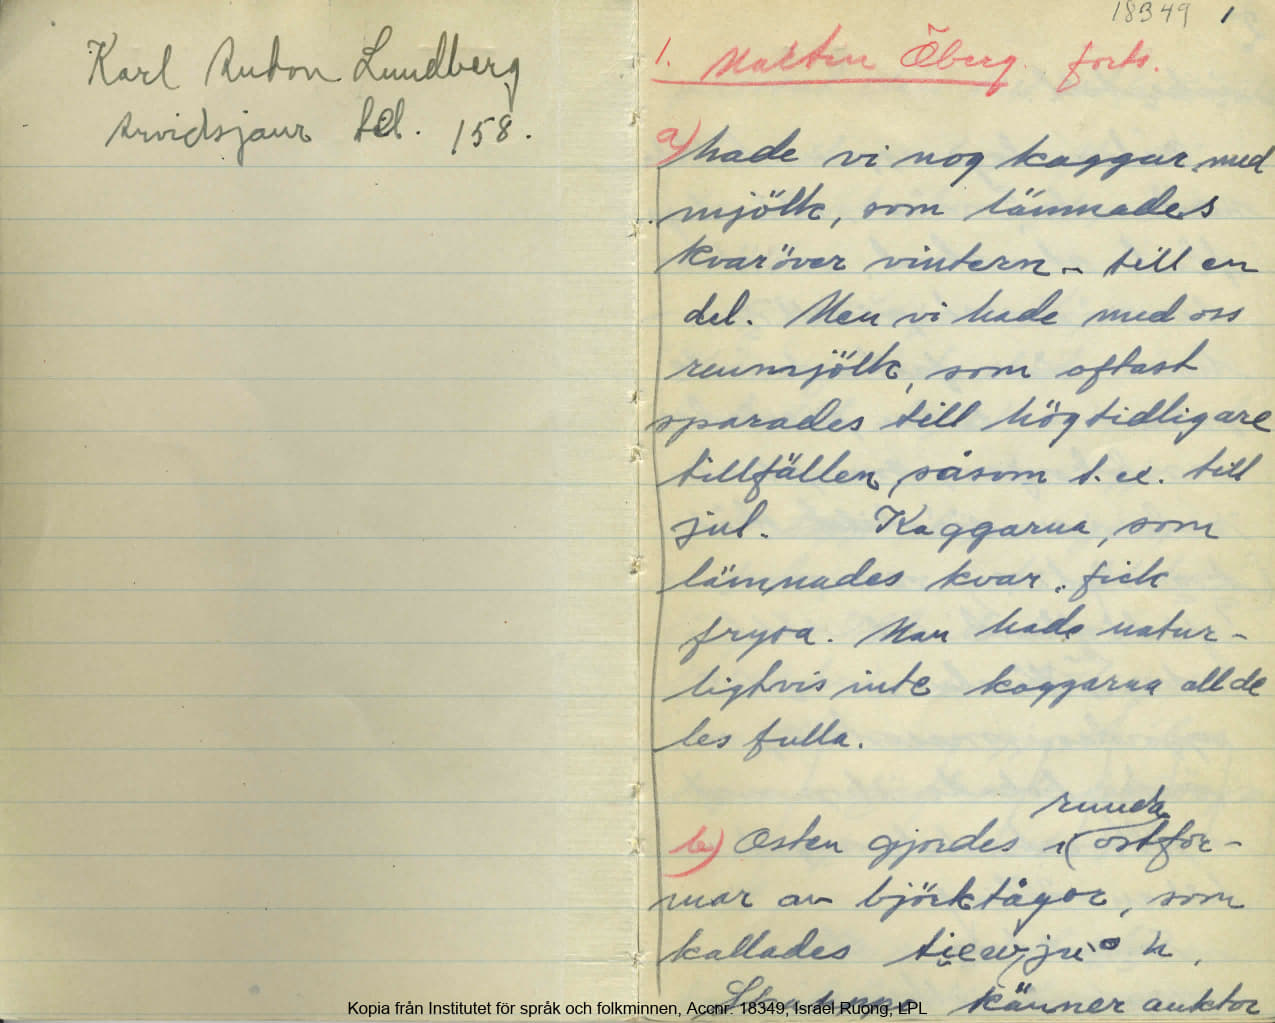 Karl Anton Lundberg
Arvidsjaur tel. 158.
18349 1
1. Malten Öberg. forts.
a) hade vi nog kaggar med
mjölk, som lämnades
kvar över vintern - till en
del. Men vi hade med oss
renmjölk, som oftast
sparades till högtidligare
tillfällen, såsom t. ex. till
jul. Kaggarna, som
lämnades kvar, fick
frysa. Man hade natur-
ligtvis inte kaggarna allde
les fulla.
runda
b) Osten gjordes i ostfor-
mar av björktågor, som
kallades
känner auktor
Kopia från Institutet för språk och folkminnen, Accnr. 18349, Israel Ruong, LPL